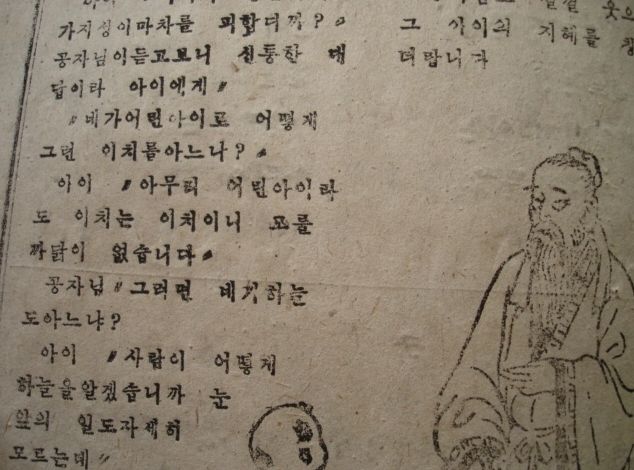 가지성이마차를 피합디까?〃
공자님이듣고보니 신통한 대
답이라 아이에게〃
〃네가어린아이로 어떻재
그런 이치를아느냐?〃
아이 〃아무리 어린아이라
도 이치는 이치이니 모를
까닭이 없습니다〃
공자님〃그러면 네가 하늘
도아느냐?
아이 〃사람이 어떻게
하늘을알겠습니까 눈
앞의 일도자세히
모르는데〃
그 아이의 지혜를
더랍니다